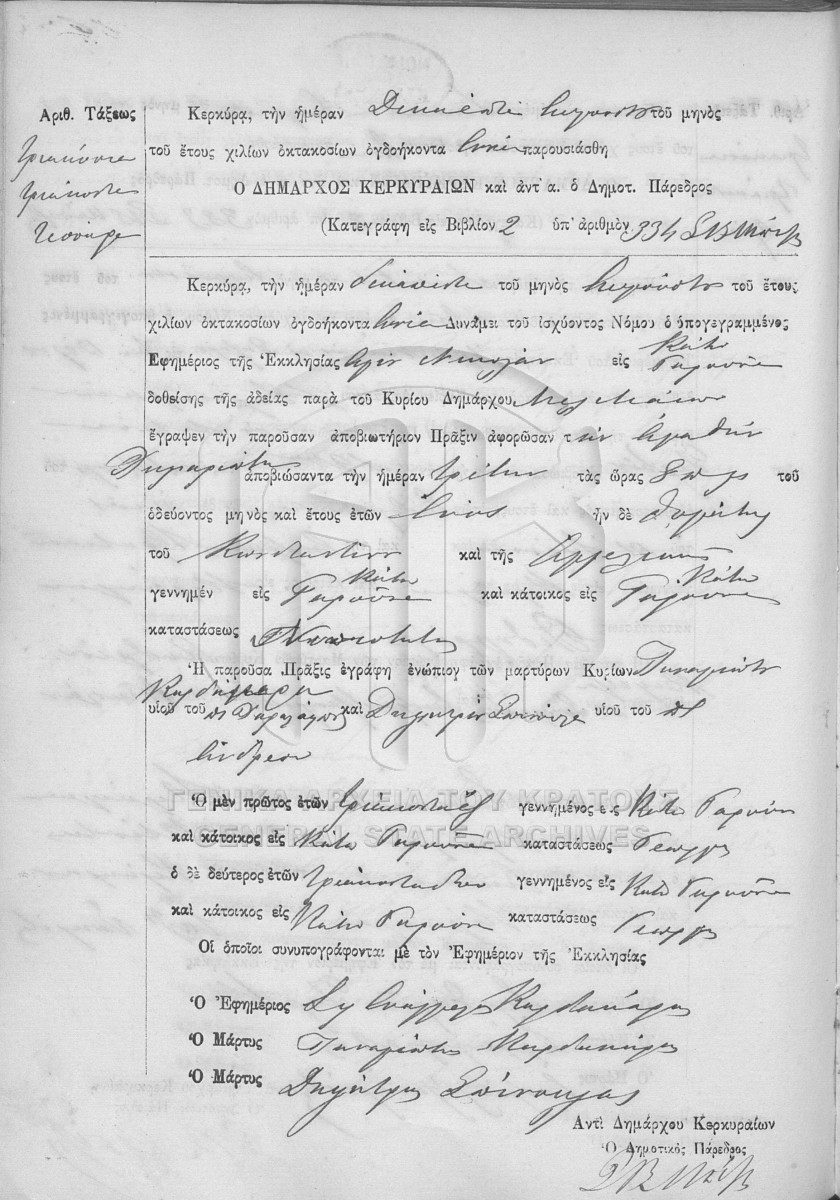 Ἀριθ. Τάξεως
τριακόσια
τριάκοντα
τέσσαρα
Κερκύρα, τὴν ἡμέραν Δεκαπέντε Αὐγούστου τοῦ μηνὸς
τοῦ ἔτους χιλίων ὀκτακοσίων ὀγδοήκοντα ἐννέα παρουσιάσθη
Ο ΔΗΜΑΡΧΟΣ ΚΕΡΚΥΡΑΙΩΝ καὶ ἀντ' α. ὁ Δημοτ. Πάρεδρος
(Κατεγράφη εἰς Βιβλίον 2 ὑπ' ἀριθμὸν 334
Κερκύρα, τὴν ἡμέραν δεκαπέντε τοῦ μηνὸς Αὐγούστου τοῦ ἔτους
χιλίων ὀκτακοσίων ὀγδοήκοντα ἐννέα Δυνάμει τοῦ ἰσχύοντος Νόμου ὁ ὑπογεγραμμένος
Ἐφημέριος τῆς Ἐκκλησίας Ἁγίου Νικολάου εἰς Κάτω Γαρούνα
δοθείσης τῆς ἀδείας παρὰ τοῦ Κυρίου Δημάρχου
ἔγραψεν τὴν παροῦσαν ἀποβιωτήριον Πρᾶξιν ἀφορῶσαν τ ὴν Ἀγαθὴν
ἀποβιώσαντα τὴν ἡμέραν τρίτην τὰς ὥρας τοῦ
ὁδεύοντος μηνὸς καὶ ἔτους ἐτῶν ἑνὸς ἦν δὲ θυγάτηρ
τοῦ Κωνσταντίνου καὶ τῆς Ἀγγελικῆς
γεννημέν εἰς Κάτω Γαρούνα καὶ κάτοικος εἰς Κάτω Γαρούνα
καταστάσεως
Ἡ παροῦσα Πρᾶξις ἐγράφη ἐνώπιον τῶν μαρτύρων Κυρίων Παναγιώτου
Καρδακάρη
υἱοῦ τοῦ π Χαραλάμπη καὶ Δημητρίου Σπίνουλα υἱοῦ τοῦ π
Ἀνδρέου
Ὁ μὲν πρῶτος ἐτῶν τριάκοντα ἓξ γεννημένος εἰς Κάτω Γαρούνα
καὶ κάτοικος εἰς Κάτω Γαρούνα καταστάσεως Γεωργὸς
ὁ δὲ δεύτερος ἐτῶν τριάκοντα δύο γεννημένος εἰς Κάτω Γαρούνα
καὶ κάτοικος εἰς Κάτω Γαρούνα καταστάσεως Γεωργὸς
Οἱ ὁποῖοι συνυπογράφονται μὲ τὸν Ἐφημέριον τῆς Ἐκκλησίας
Ὁ Ἐφημέριος Καρδακάρης
Ὁ Μάρτυς Παναγιώτης Καρδακάρης
Ὁ Μάρτυς Δημήτρης Σπίνουλας
Ἀντὶ Δημάρχου Κερκυραίων
Ὁ Δημοτικὸς Πάρεδρος
ΓΕΝΙΚΑ ΑΡΧΕΙΑ ΤΟΥ ΚΡΑΤΟΥΣ
GENERAL STATE ARCHIVES